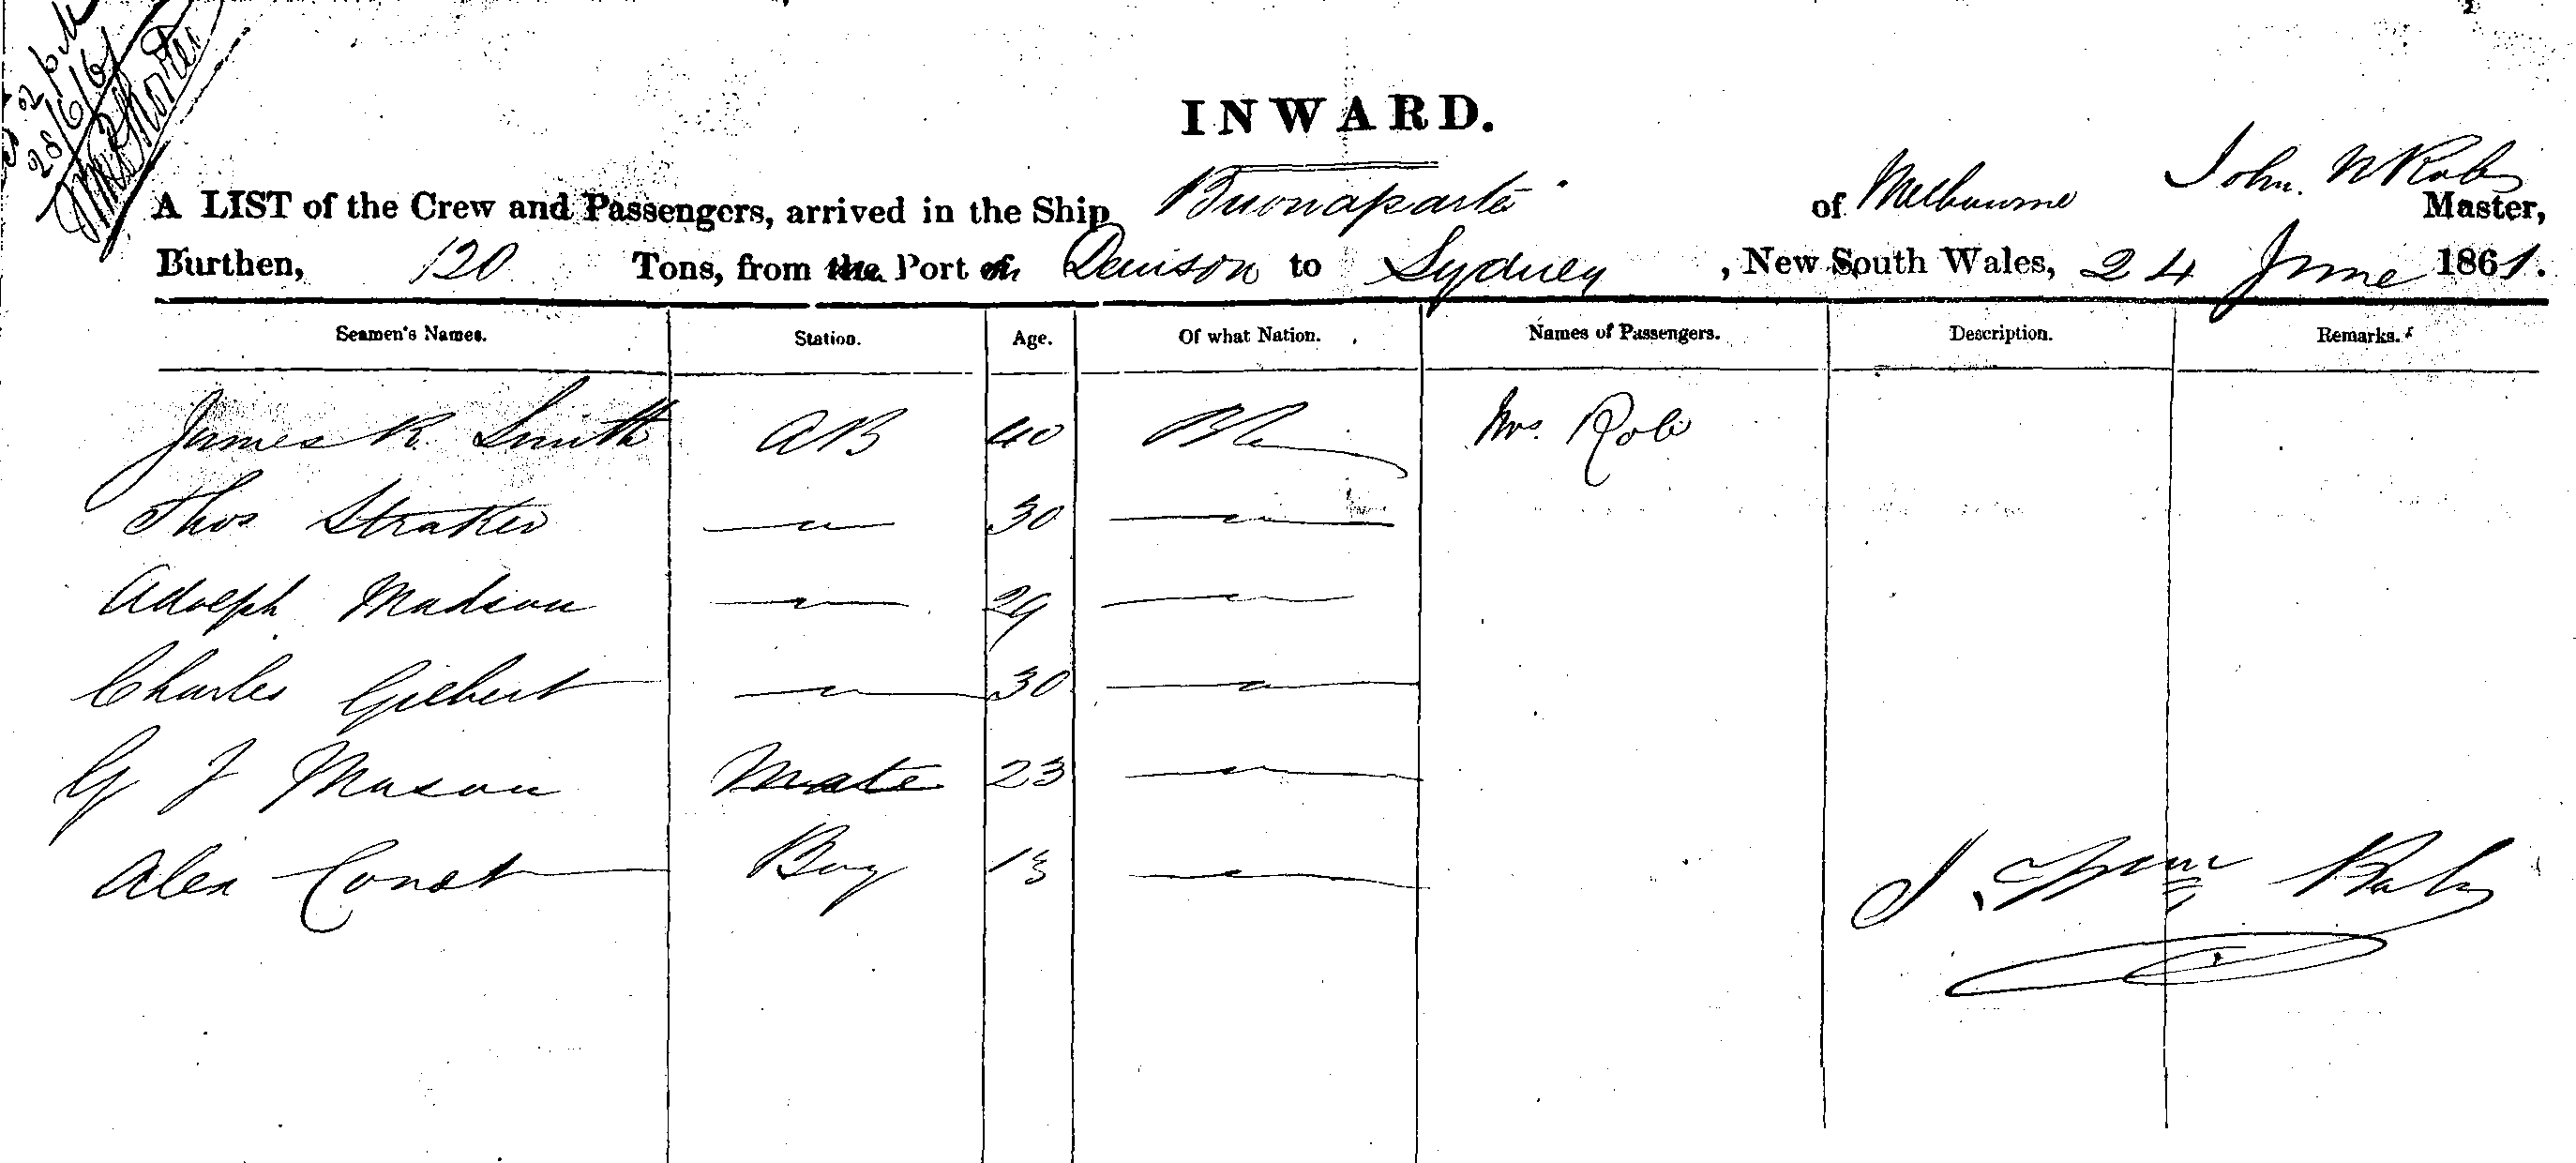 2 p.M
28/6/61
INWARD.
A LIST of the Crew and Passengers, arrived in the Ship Buonaparte of Melbourne John W Robe Master,
Burthen, 120 Tons, from the Port of Denison to Sydney, New South Wales, 24 June 1861.
Seamen's Names. Station. Age. Of what Nation. Names of Passengers. Description. Remarks.
James R. Smith AB 40 Mrs. Robe
Thos Straker — " — 30 — " —
Adolph Madson — " — 29 — " —
Charles Gilbert — " — 30 — " —
G J Mason Mate 23 — " —
Alex Boy 13 — " —